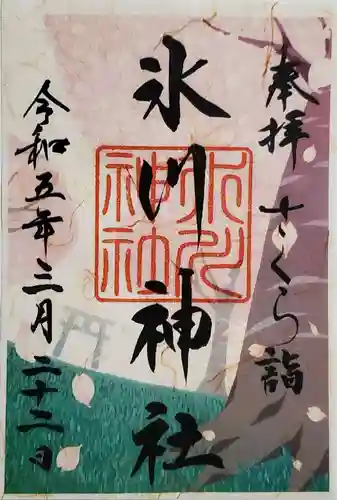 奉拝 さくら詣
氷川神社
氷川神社
令和五年三月二十二日